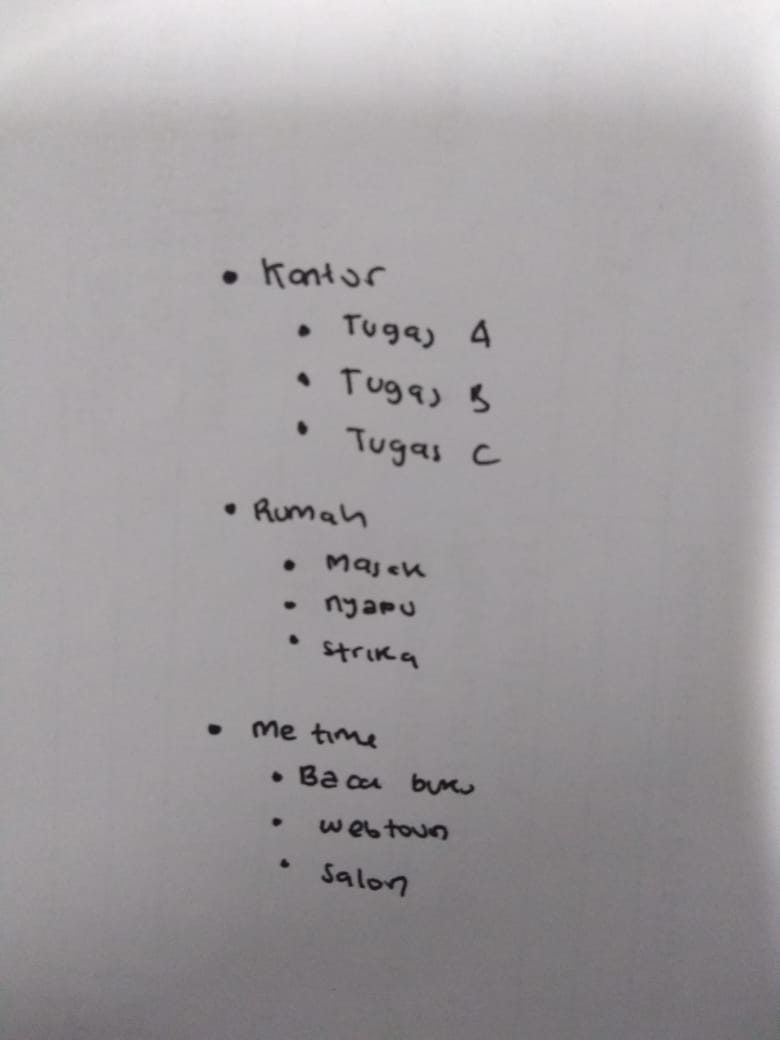 • Kantor
• Tugas A
• Tugas B
• Tugas C
• Rumah
• Masak
• nyapu
• strika
• me time
• Baca buku
• webtoon
• salon